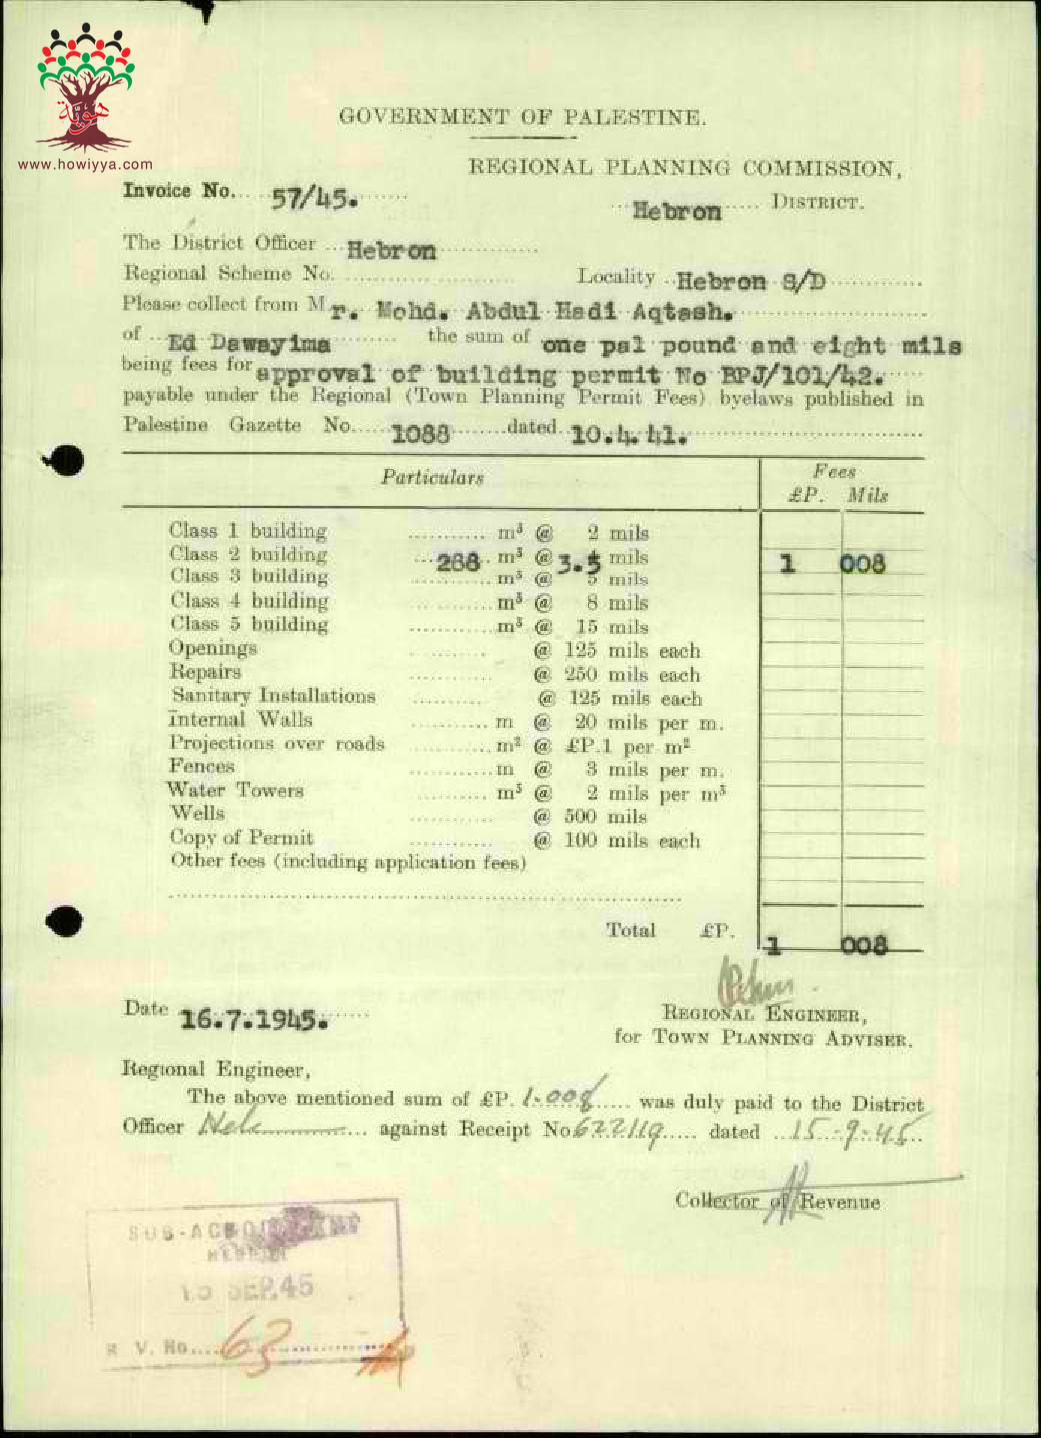 هوية
www.howiyya.com
GOVERNMENT OF PALESTINE.
REGIONAL PLANNING COMMISSION,
Invoice No. 57/45.
Hebron DISTRICT.
The District Officer Hebron
Regional Scheme No. Locality Hebron S/D
Please collect from Mr. Mohd. Abdul Hadi Aqtash.
of Ed Dawayima the sum of one pal pound and eight mils
being fees for approval of building permit No BPJ/101/42.
payable under the Regional (Town Planning Permit Fees) byelaws published in
Palestine Gazette No. 1088 dated 10.4.41.
Particulars Fees
£P. Mils
Class 1 building m³ @ 2 mils
Class 2 building 288 m³ @ 3.5 mils 1 008
Class 3 building m³ @ 5 mils
Class 4 building m³ @ 8 mils
Class 5 building m³ @ 15 mils
Openings @ 125 mils each
Repairs @ 250 mils each
Sanitary Installations @ 125 mils each
Internal Walls m @ 20 mils per m.
Projections over roads m² @ £P.1 per m²
Fences m @ 3 mils per m.
Water Towers m³ @ 2 mils per m³
Wells @ 500 mils
Copy of Permit @ 100 mils each
Other fees (including application fees)
Total £P. 1 008
Date 16.7.1945.
REGIONAL ENGINEER,
for TOWN PLANNING ADVISER.
Regional Engineer,
The above mentioned sum of £P. 1.008 was duly paid to the District
Officer against Receipt No. 622119 dated 15-9-45
Collector of Revenue
SUB-ACCOUNTANT
HEBRON
15 SEP.45
R V. No. 63